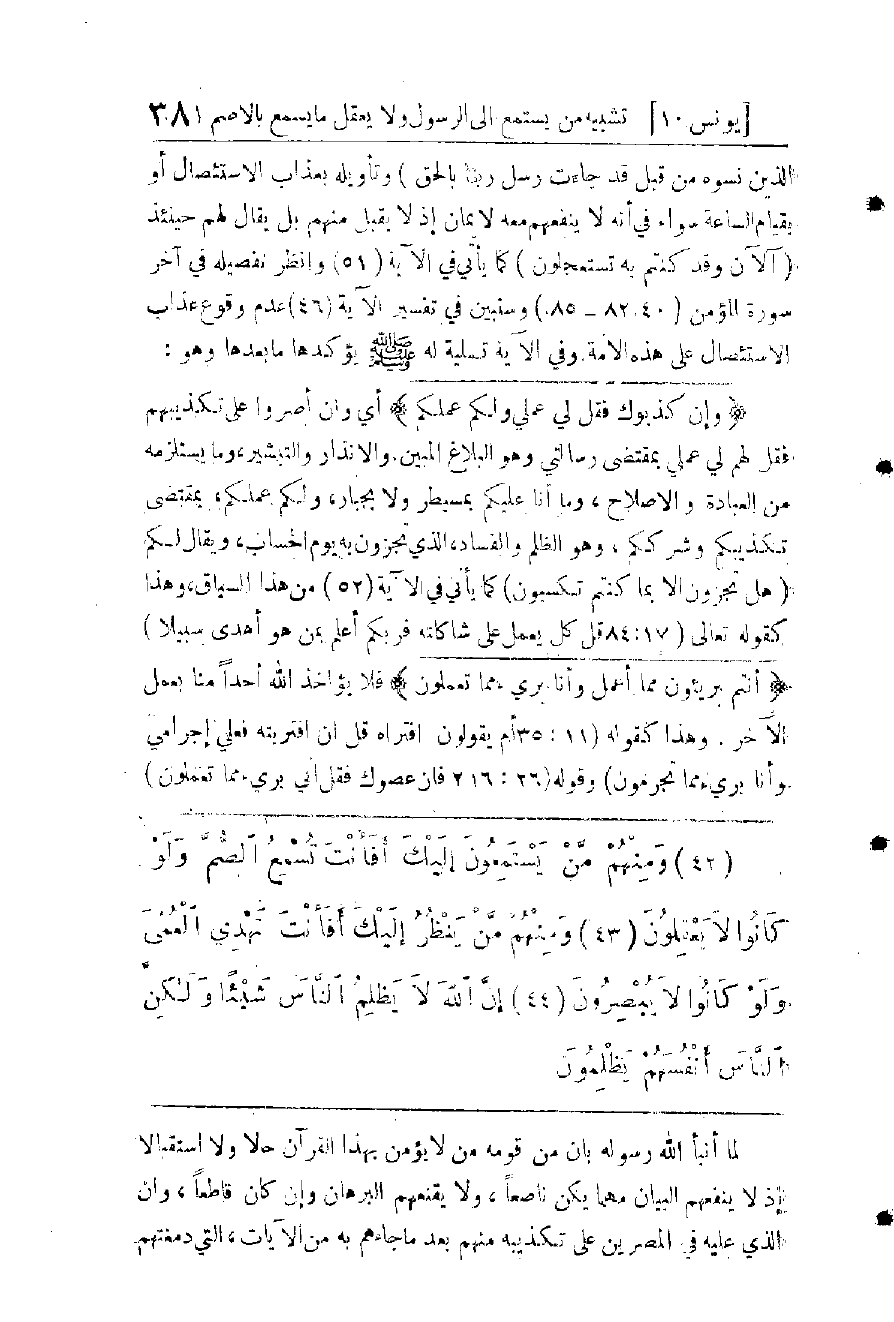 [يونس ١٠] تشبيه من يستمع الى الرسول ولا يعقل ما يسمع بالاصم ٣٨١
الذين نسوه من قبل قد جاءت رسل ربنا بالحق ) وتأويله بعذاب الاستئصال أو
بقيام الساعة سواء في أنه لا ينفعهم معه الايمان إذ لا يقبل منهم بل يقال لهم حينئذ
( آلآن وقد كنتم به تستعجلون ) كما يأتي في الآية ( ٥١ ) وانظر تفصيله في آخر
سورة المؤمن ( ٤٠ . ٨٢ – ٨٥ ) وسنبين في تفسير الآية (٤٦) عدم وقوع عذاب
الاستئصال على هذه الامة. وفي الآية تسلية له ﷺ يؤكدها ما بعدها وهو :
﴿ وإن كذبوك فقل لي عملي ولكم عملكم ﴾ أي وان أصروا على تكذيبهم
فقل لهم لي عملي بمقتضى رسالتي وهو البلاغ المبين. والانذار والتبشير، وما يستلزمه
من العبادة والاصلاح ، وما أنا عليكم بمسيطر ولا بجبار، ولكم عملكم، بمقتضى
تكذيبكم وشرككم ، وهو الظلم والفساد، الذي تجزون به يوم الحساب، ويقال لكم
( هل تجزون الا بما كنتم تكسبون ) كما يأتي في الآية (٥٢ ) من هذا السياق، وهذا
كقوله تعالى ( ١٧:٨٤ قل كل يعمل على شاكلته فربكم أعلم بمن هو أهدى سبيلا )
﴿ أنتم بريئون مما أعمل وأنا بريء مما تعملون ﴾ فلا يؤاخذ الله أحداً منا بعمل
الآخر . وهذا كقوله (١١ : ٣٥ أم يقولون افتراه قل ان افتريته فعلي إجرامي
وأنا بريء مما تجرمون) وقوله (٢٦ : ٢١٦ فان عصوك فقل اني بريء مما تعملون )
(٤٢) وَمِنْهُمْ مَّنْ يَسْتَمِعُونَ إِلَيْكَ أَفَأَنْتَ تُسْمِعُ ٱلصُّمَّ وَلَوْ
كَانُوا لاَ يَعْقِلُونَ (٤٣) وَمِنْهُمْ مَّنْ يَنْظُرُ إِلَيْكَ أَفَأَنْتَ تَهْدِي ٱلْعُمْيَ
وَلَوْ كَانُوا لاَ يُبْصِرُونَ (٤٤) إِنَّ ٱللهَ لاَ يَظْلِمُ ٱلنَّاسَ شَيْئًا وَلٰكِنَّ
ٱلنَّاسَ أَنْفُسَهُمْ يَظْلِمُونَ
لما أنبأ الله رسوله بان من قومه من لا يؤمن بهذا القرآن حالا ولا استقبالا
إذ لا ينفعهم البيان مهما يكن ناصعاً ، ولا يقنعهم البرهان وإن كان قاطعاً ، وان
الذي عليه في المصرين على تكذيبه منهم بعد ما جاءهم به من الآيات ، التي دمغتهم